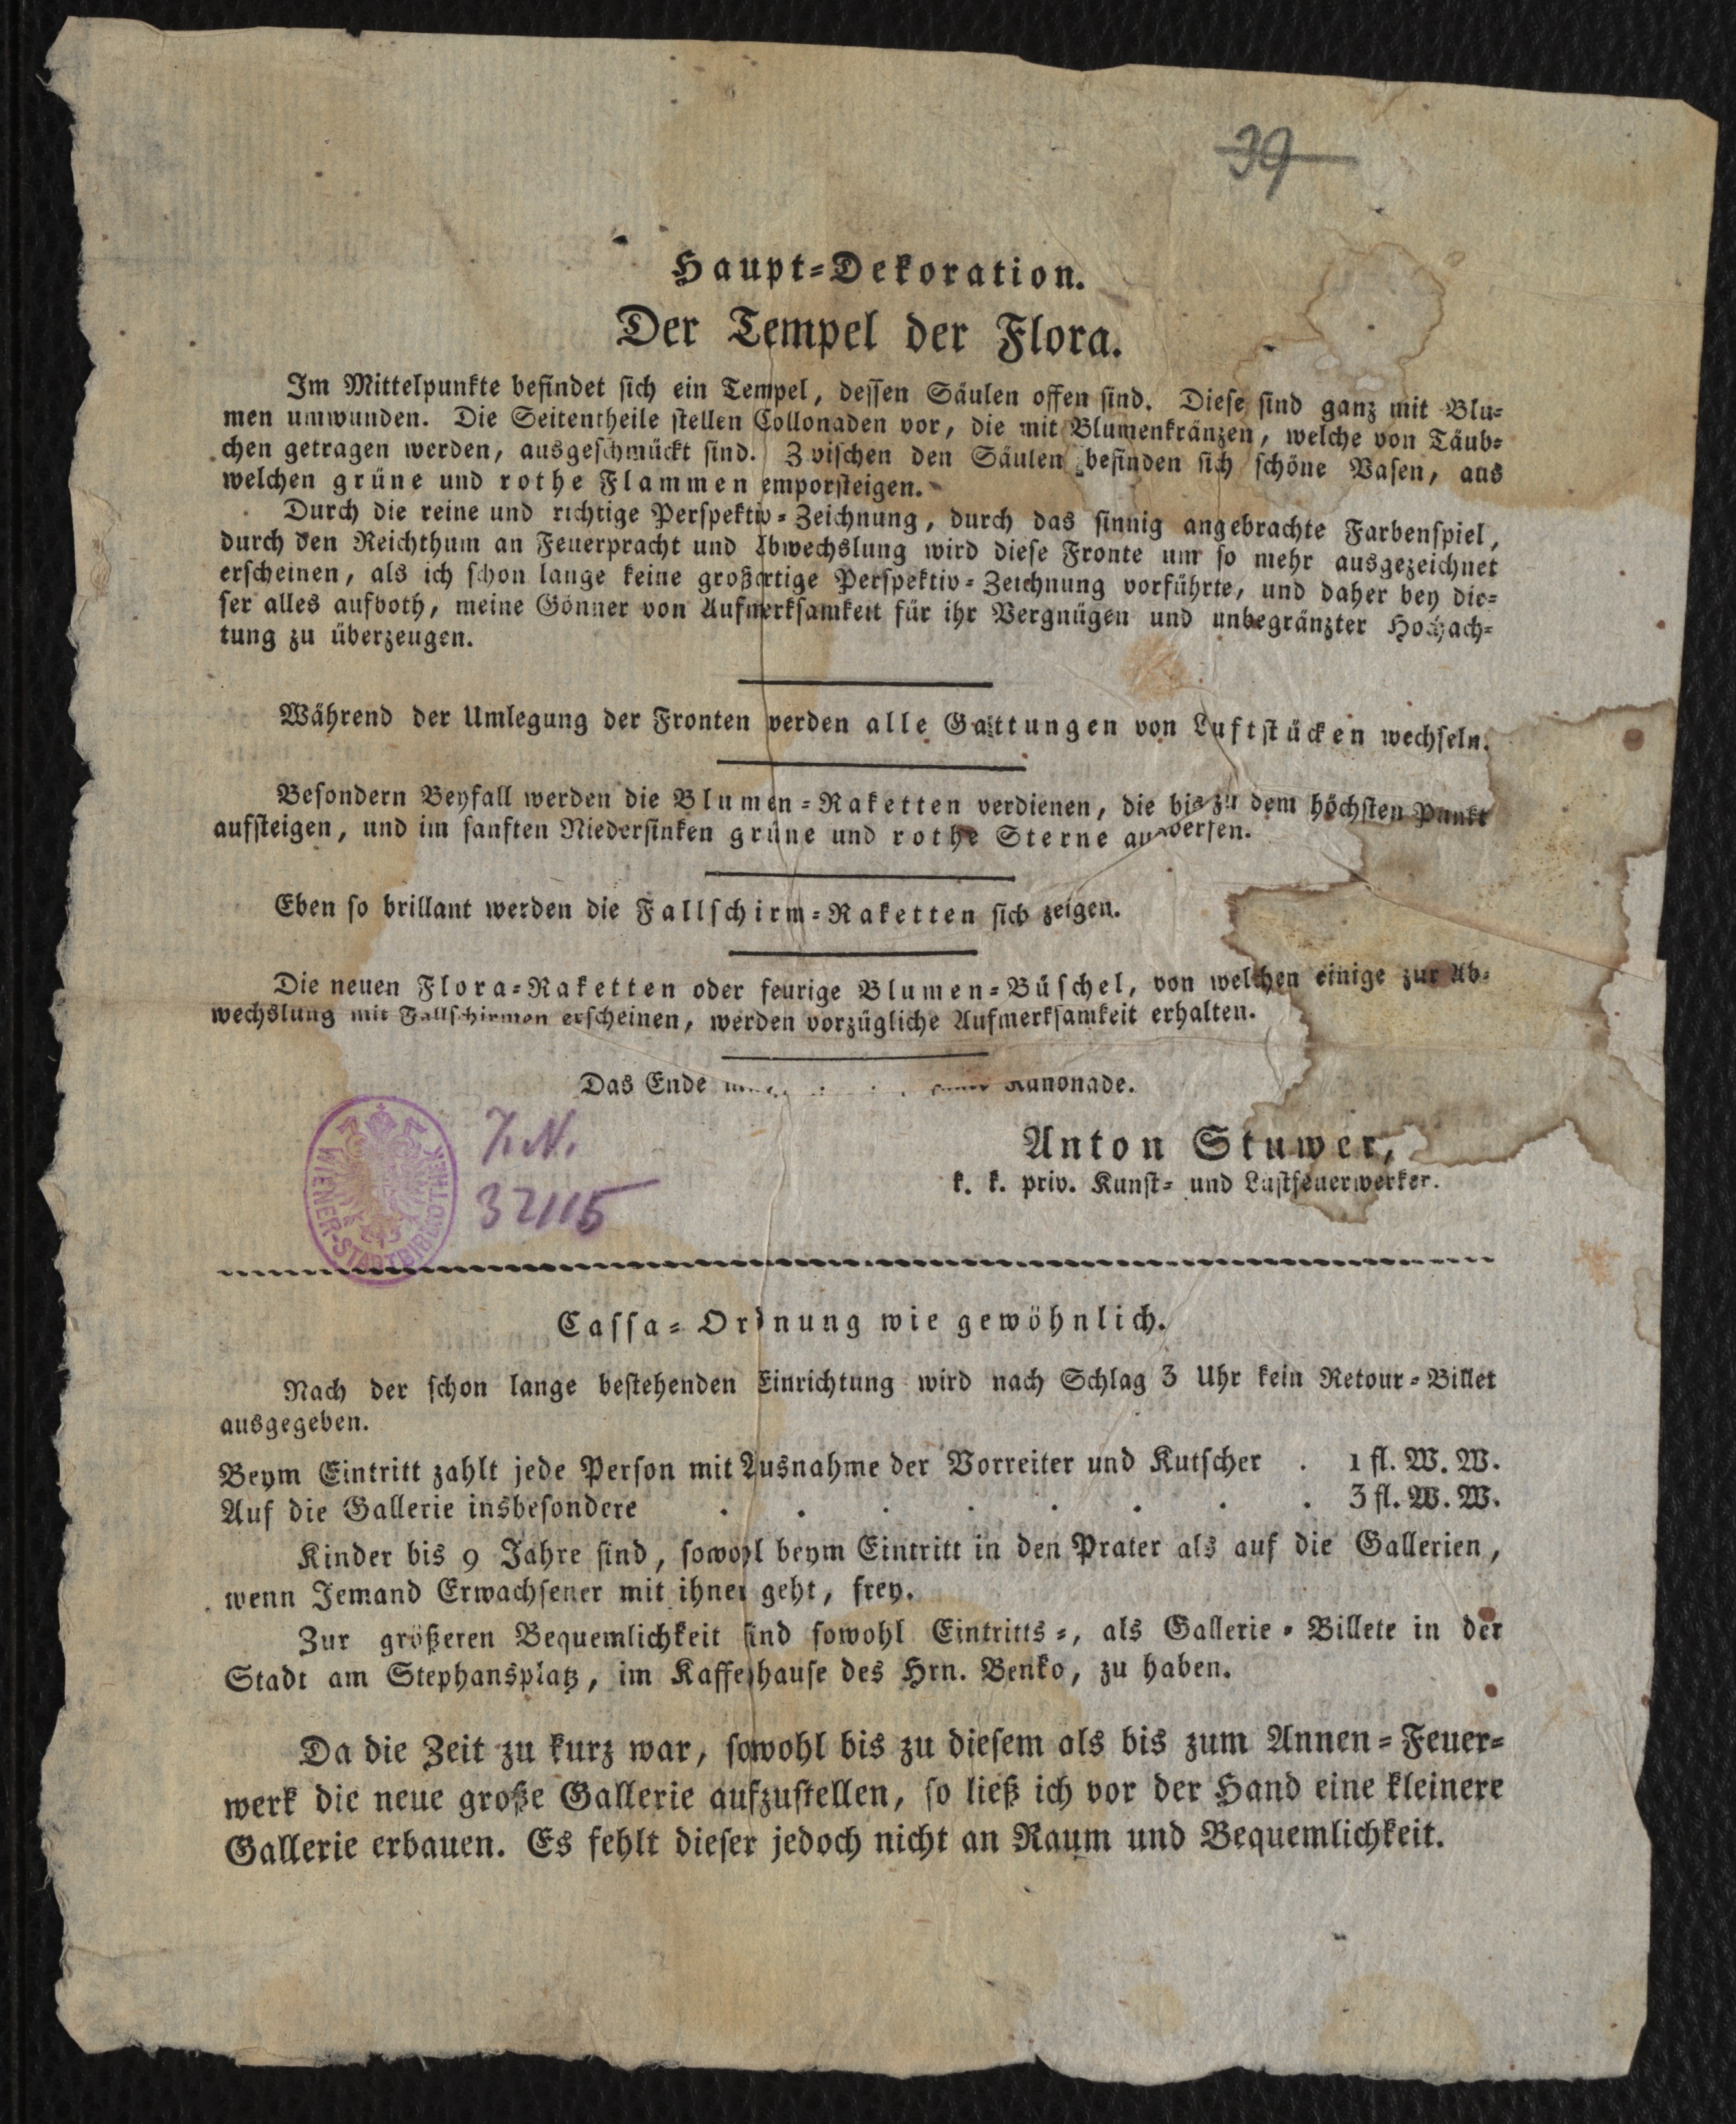 39
Haupt-Dekoration.
Der Tempel der Flora.
Im Mittelpunkte befindet sich ein Tempel, dessen Säulen offen sind. Diese sind ganz mit Blu-
men umwunden. Die Seitentheile stellen Collonaden vor, die mit Blumenkränzen, welche von Täub-
chen getragen werden, ausgeschmückt sind. Zwischen den Säulen befinden sich schöne Vasen, aus
welchen grüne und rothe Flammen emporsteigen.
Durch die reine und richtige Perspektiv-Zeichnung, durch das sinnig angebrachte Farbenspiel,
durch den Reichthum an Feuerpracht und Abwechslung wird diese Fronte um so mehr ausgezeichnet
erscheinen, als ich schon lange keine großartige Perspektiv-Zeichnung vorführte, und daher bey die-
ser alles aufboth, meine Gönner von Aufmerksamkeit für ihr Vergnügen und unbegränzter Hochach-
tung zu überzeugen.
Während der Umlegung der Fronten werden alle Gattungen von Luftstücken wechseln.
Besondern Beyfall werden die Blumen-Raketten verdienen, die bis zu dem höchsten Punkt
aufsteigen, und im sanften Niedersinken grüne und rothe Sterne auswerfen.
Eben so brillant werden die Fallschirm-Raketten sich zeigen.
Die neuen Flora-Raketten oder feurige Blumen-Büschel, von welchen einige zur Ab-
wechslung mit Fallschirmen erscheinen, werden vorzügliche Aufmerksamkeit erhalten.
Das Ende Kanonade.
Anton Stuwer,
k. k. priv. Kunst- und Lustfeuerwerker.
WIENER-STADTBIBLIOTHEK
J.N.
32115
Cassa-Ordnung wie gewöhnlich.
Nach der schon lange bestehenden Einrichtung wird nach Schlag 3 Uhr kein Retour-Billet
ausgegeben.
Beym Eintritt zahlt jede Person mit Ausnahme der Vorreiter und Kutscher . 1 fl. W. W.
Auf die Gallerie insbesondere . . . . . . . . 3 fl. W. W.
Kinder bis 9 Jahre sind, sowohl beym Eintritt in den Prater als auf die Gallerien,
wenn Jemand Erwachsener mit ihnen geht, frey.
Zur größeren Bequemlichkeit sind sowohl Eintritts-, als Gallerie-Billete in der
Stadt am Stephansplatz, im Kaffehhause des Hrn. Benko, zu haben.
Da die Zeit zu kurz war, sowohl bis zu diesem als bis zum Annen-Feuer-
werk die neue große Gallerie aufzustellen, so ließ ich vor der Hand eine kleinere
Gallerie erbauen. Es fehlt dieser jedoch nicht an Raum und Bequemlichkeit.